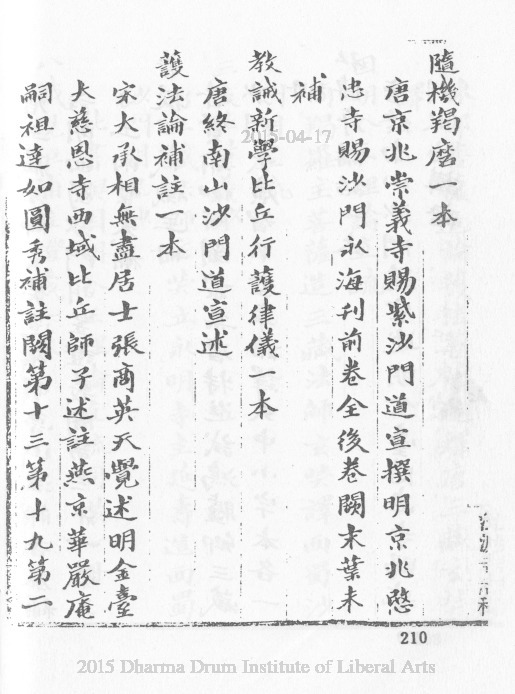 隨機羯磨一本
唐京兆崇義寺賜紫沙門道宣撰明京兆愍
忠寺賜沙門永海刊前卷全後卷闕末葉未
補
教誡新學比丘行護律儀一本
唐終南山沙門道宣述
護法論補註一本
宋大丞相無盡居士張商英天覺述明金臺
大慈恩寺西域比丘師子述註燕京華嚴庵
嗣祖達如圓秀補註闕第十三第十九第二
210
2015-04-17
2015 Dharma Drum Institute of Liberal Arts